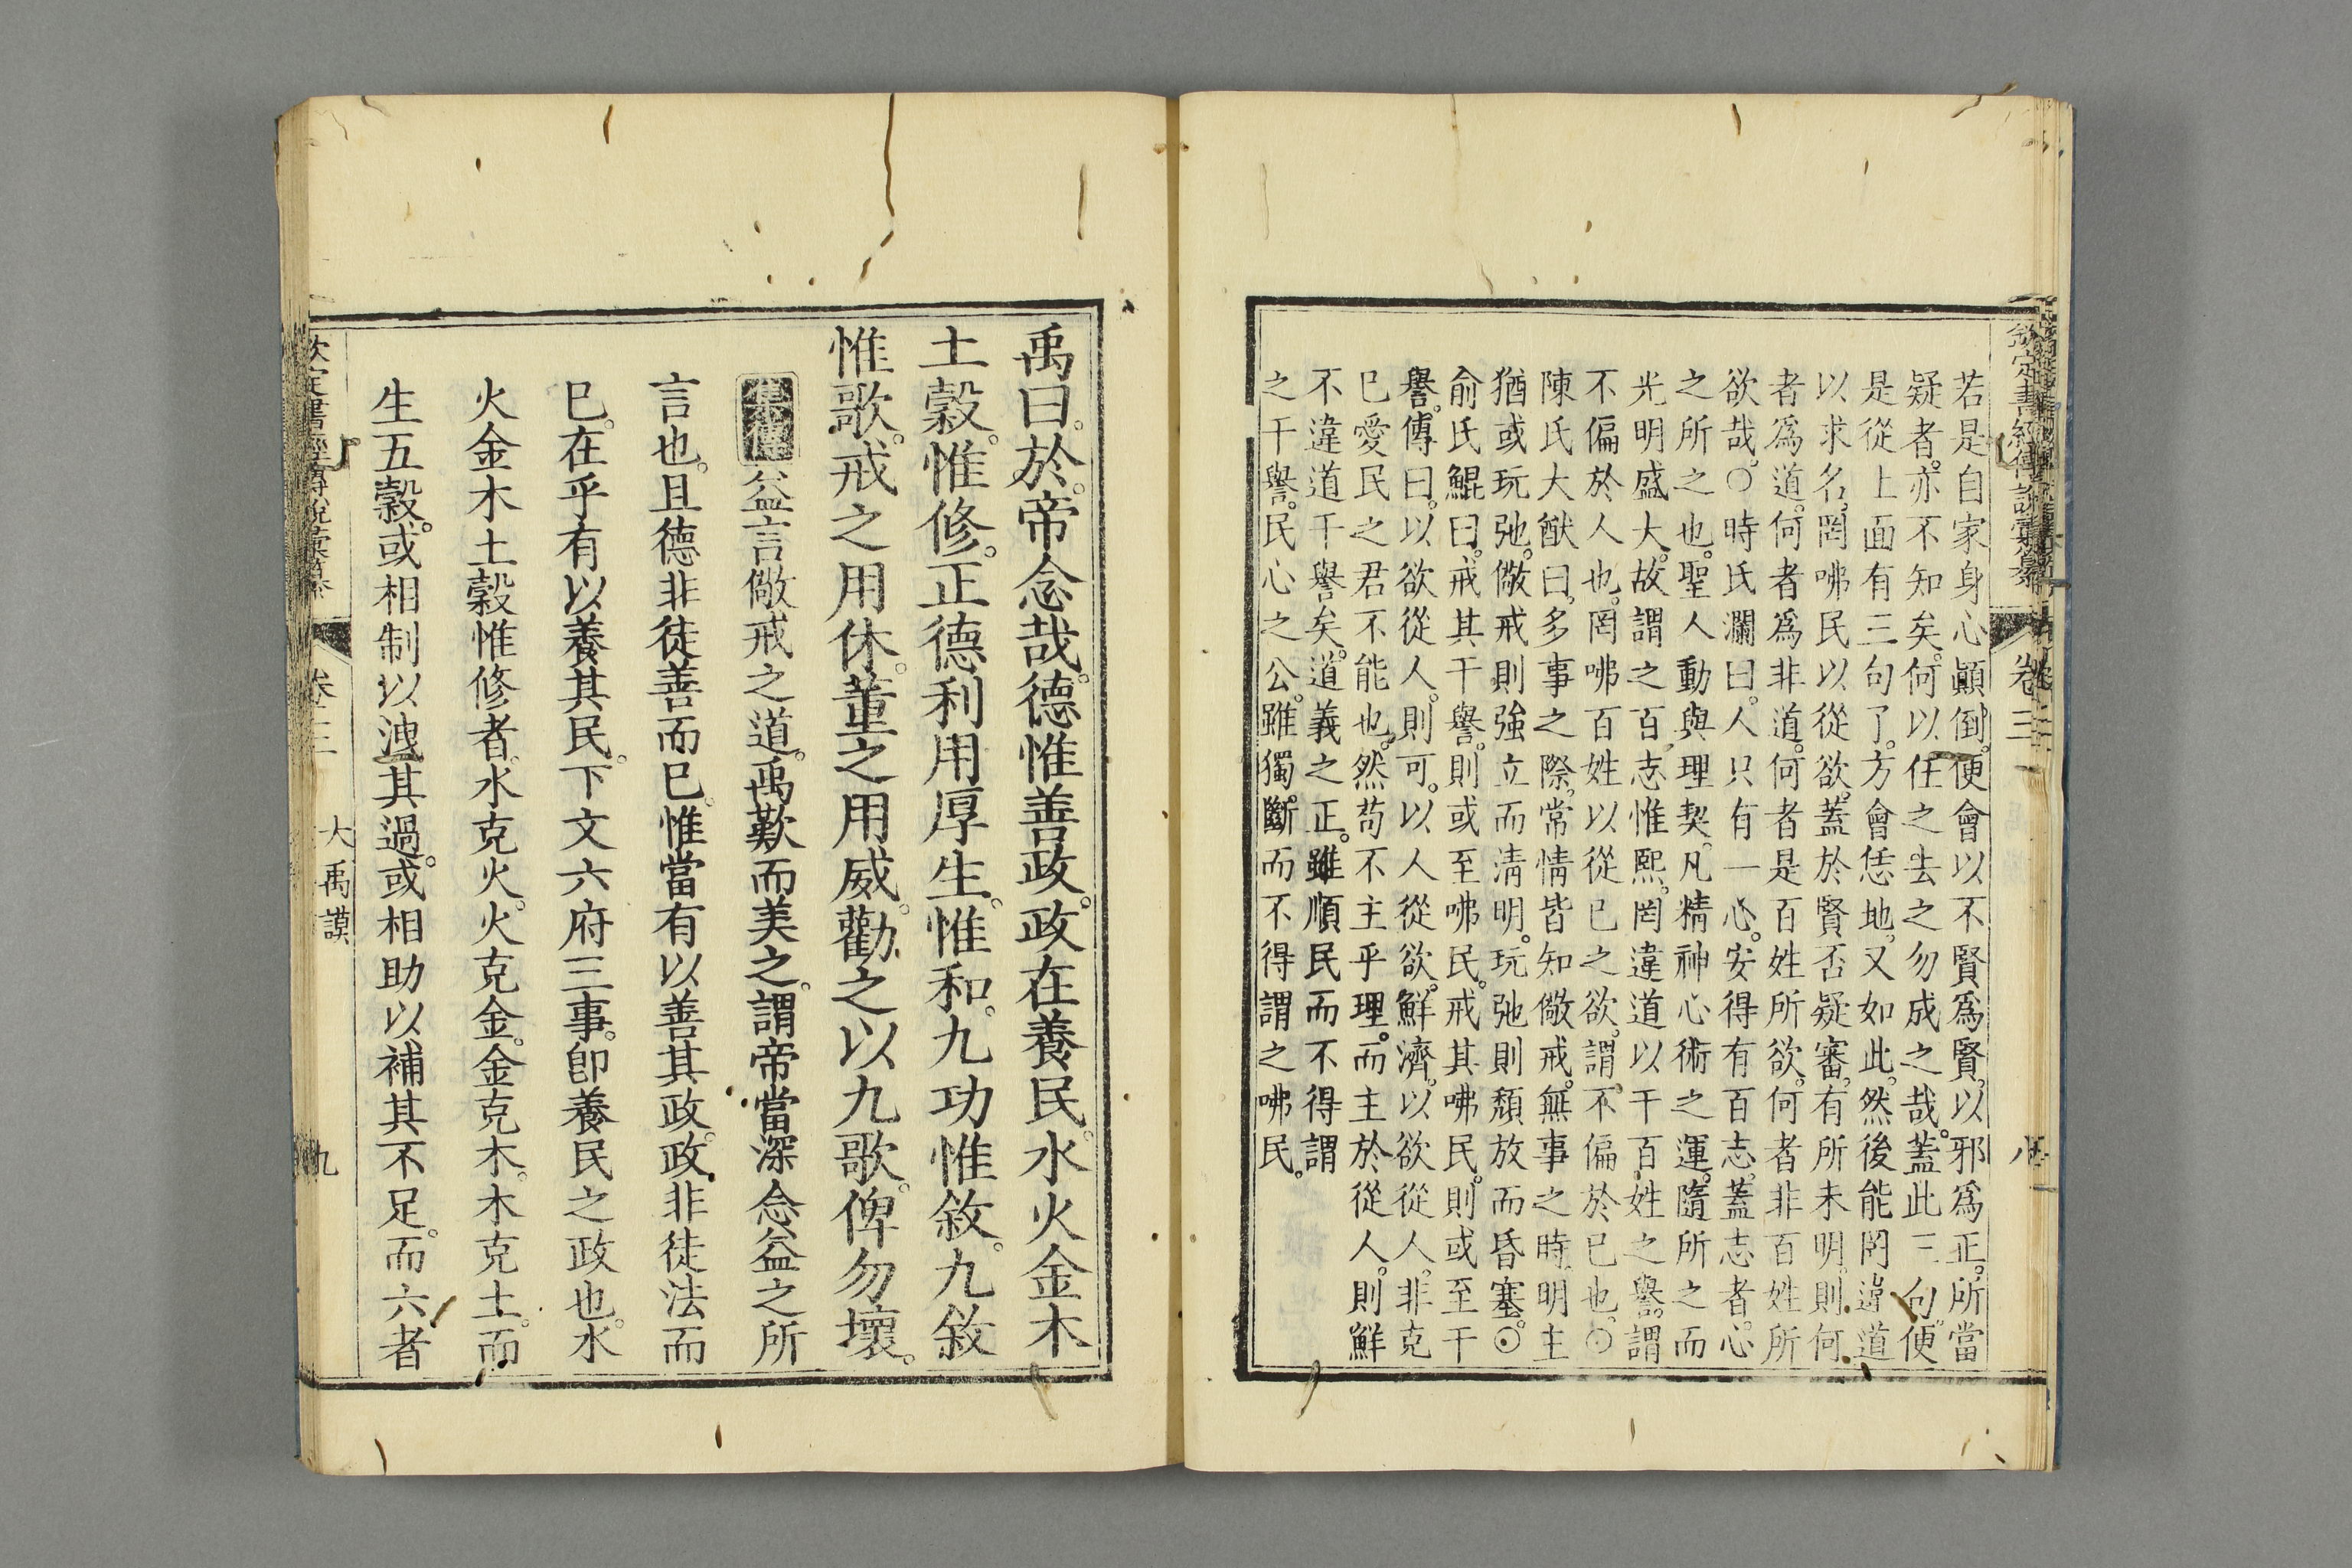 欽定書經傳說彙纂 卷三 八
若是自家身心顚倒。便會以不賢爲賢。以邪爲正。所當
疑者。亦不知矣。何以任之去之勿成之哉。蓋此三句。便
是從上面有三句了。方會恁地。又如此。然後能罔違道
以求名。罔咈民以從欲。蓋於賢否疑審。有所未明。則何
者爲道。何者爲非道。何者是百姓所欲。何者非百姓所
欲哉。○時氏瀾曰。人只有一心。安得有百志。蓋志者。心
之所之也。聖人動與理契。凡精神心術之運。隨所之而
光明盛大。故謂之百志惟熙。罔違道以干百姓之譽。謂
不偏於人也。罔咈百姓以從己之欲。謂不偏於己也。⊙
陳氏大猷曰。多事之際。常情皆知儆戒。無事之時。明主
猶或玩弛。儆戒則強立而淸明。玩弛則頹放而昏塞。⊙
俞氏鯤曰。戒其干譽。則或至咈民。戒其咈民。則或至干
譽。傳曰。以欲從人。則可。以人從欲。鮮濟。以欲從人。非克
己愛民之君不能也。然苟不主乎理。而主於從人。則鮮
不違道干譽矣。道義之正。雖順民而不得謂
之干譽。民心之公。雖獨斷而不得謂之咈民。
禹曰。於。帝念哉。德惟善政。政在養民。水火金木
土穀。惟修。正德利用厚生。惟和。九功惟敘。九敘
惟歌。戒之用休。董之用威。勸之以九歌。俾勿壞。
集傳 益言儆戒之道。禹歎而美之。謂帝當深念益之所
言也。且德非徒善而已。惟當有以善其政。政非徒法而
已。在乎有以養其民。下文六府三事。卽養民之政也。水
火金木土穀惟修者。水克火。火克金。金克木。木克土。而
生五穀。或相制以洩其過。或相助以補其不足。而六者
欽定書經傳說彙纂 卷三 大禹謨 九